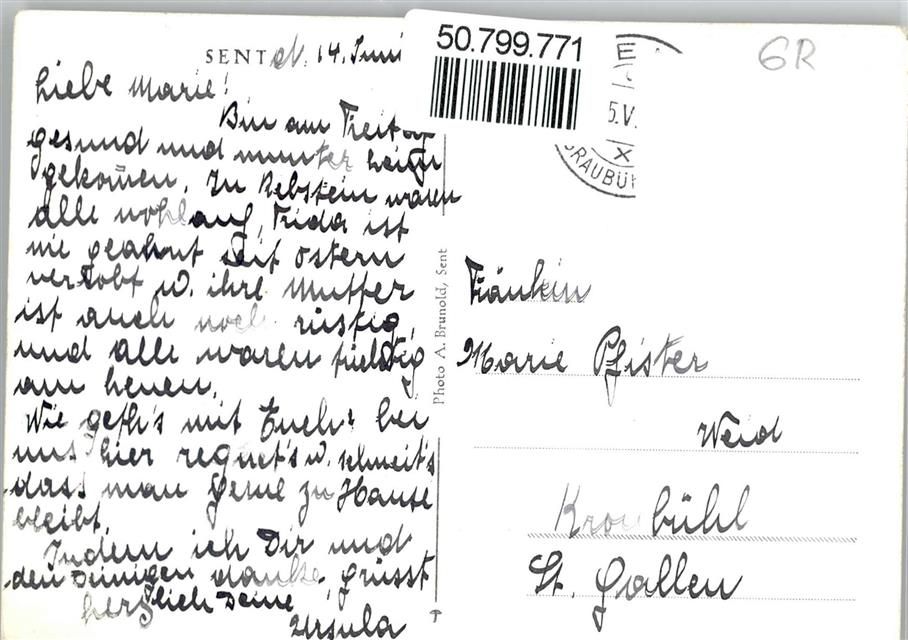 SENT d. 14. Juni
Liebe Marie!
Bin am Freitag
gesund und munter heim
gekommen. In Rebstein waren
alle wohlauf, Frida ist
wie geahnt seit Ostern
verlobt u. ihre Mutter
ist auch noch rüstig,
und alle waren fleissig
am heuen.
Wie geht's mit Euch? bei
uns hier regnet's u. schneit's
dass man gerne zu Hause
bleibt.
Indem ich Dir und
den Deinigen danke, grüsst
herzlich Deine
Ursula
Photo A. Brunold, Sent
50.799.771
5.V.
X
GRAUBÜ
6R
Fräulein
Marie Pfister
Weid
Kronbühl
St. Gallen